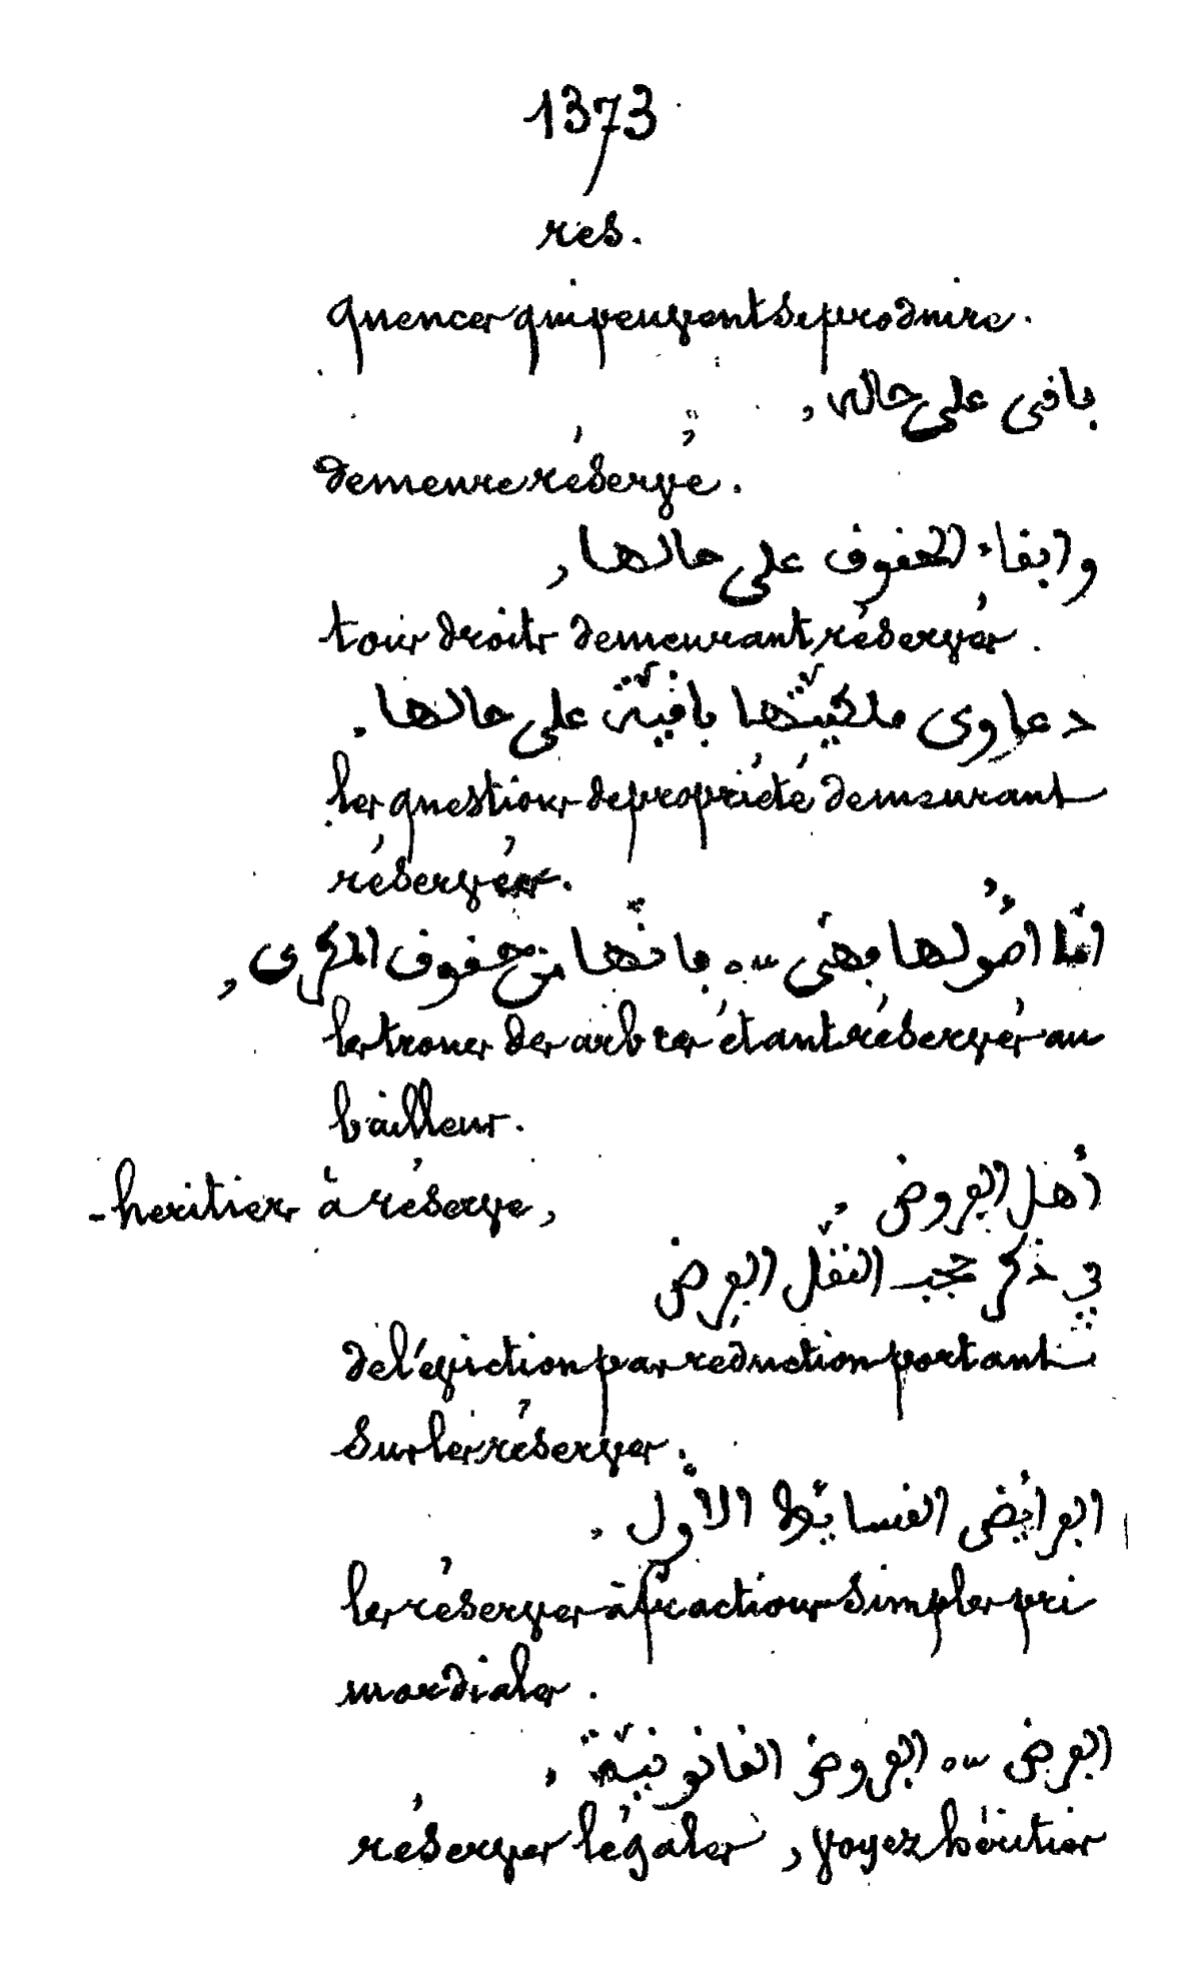 1373
res.
quences qui peuvent se produire.
باقى على حاله,
demeure réservé.
وابقاء الحقوق على حالها,
tous droits demeurant réservés.
دعاوى ملكيتها باقية على حالها.
les questions de propriété demeurant
réservées.
امّا اصُولها فهى ... فانّها من حقوق المكرى,
les troncs des arbres étant réservés au
bailleur.
- heritier à réserve, أهل الفروض.
في ذكر حجب النقل الفرض
de l'éviction par réduction portant
sur les réserves.
الفرائض البسائط الاوّل.
les réserves à fractions simples pri
mordiales.
الفرض ... الفروض القانونيّة,
réserves légales, voyez héritier